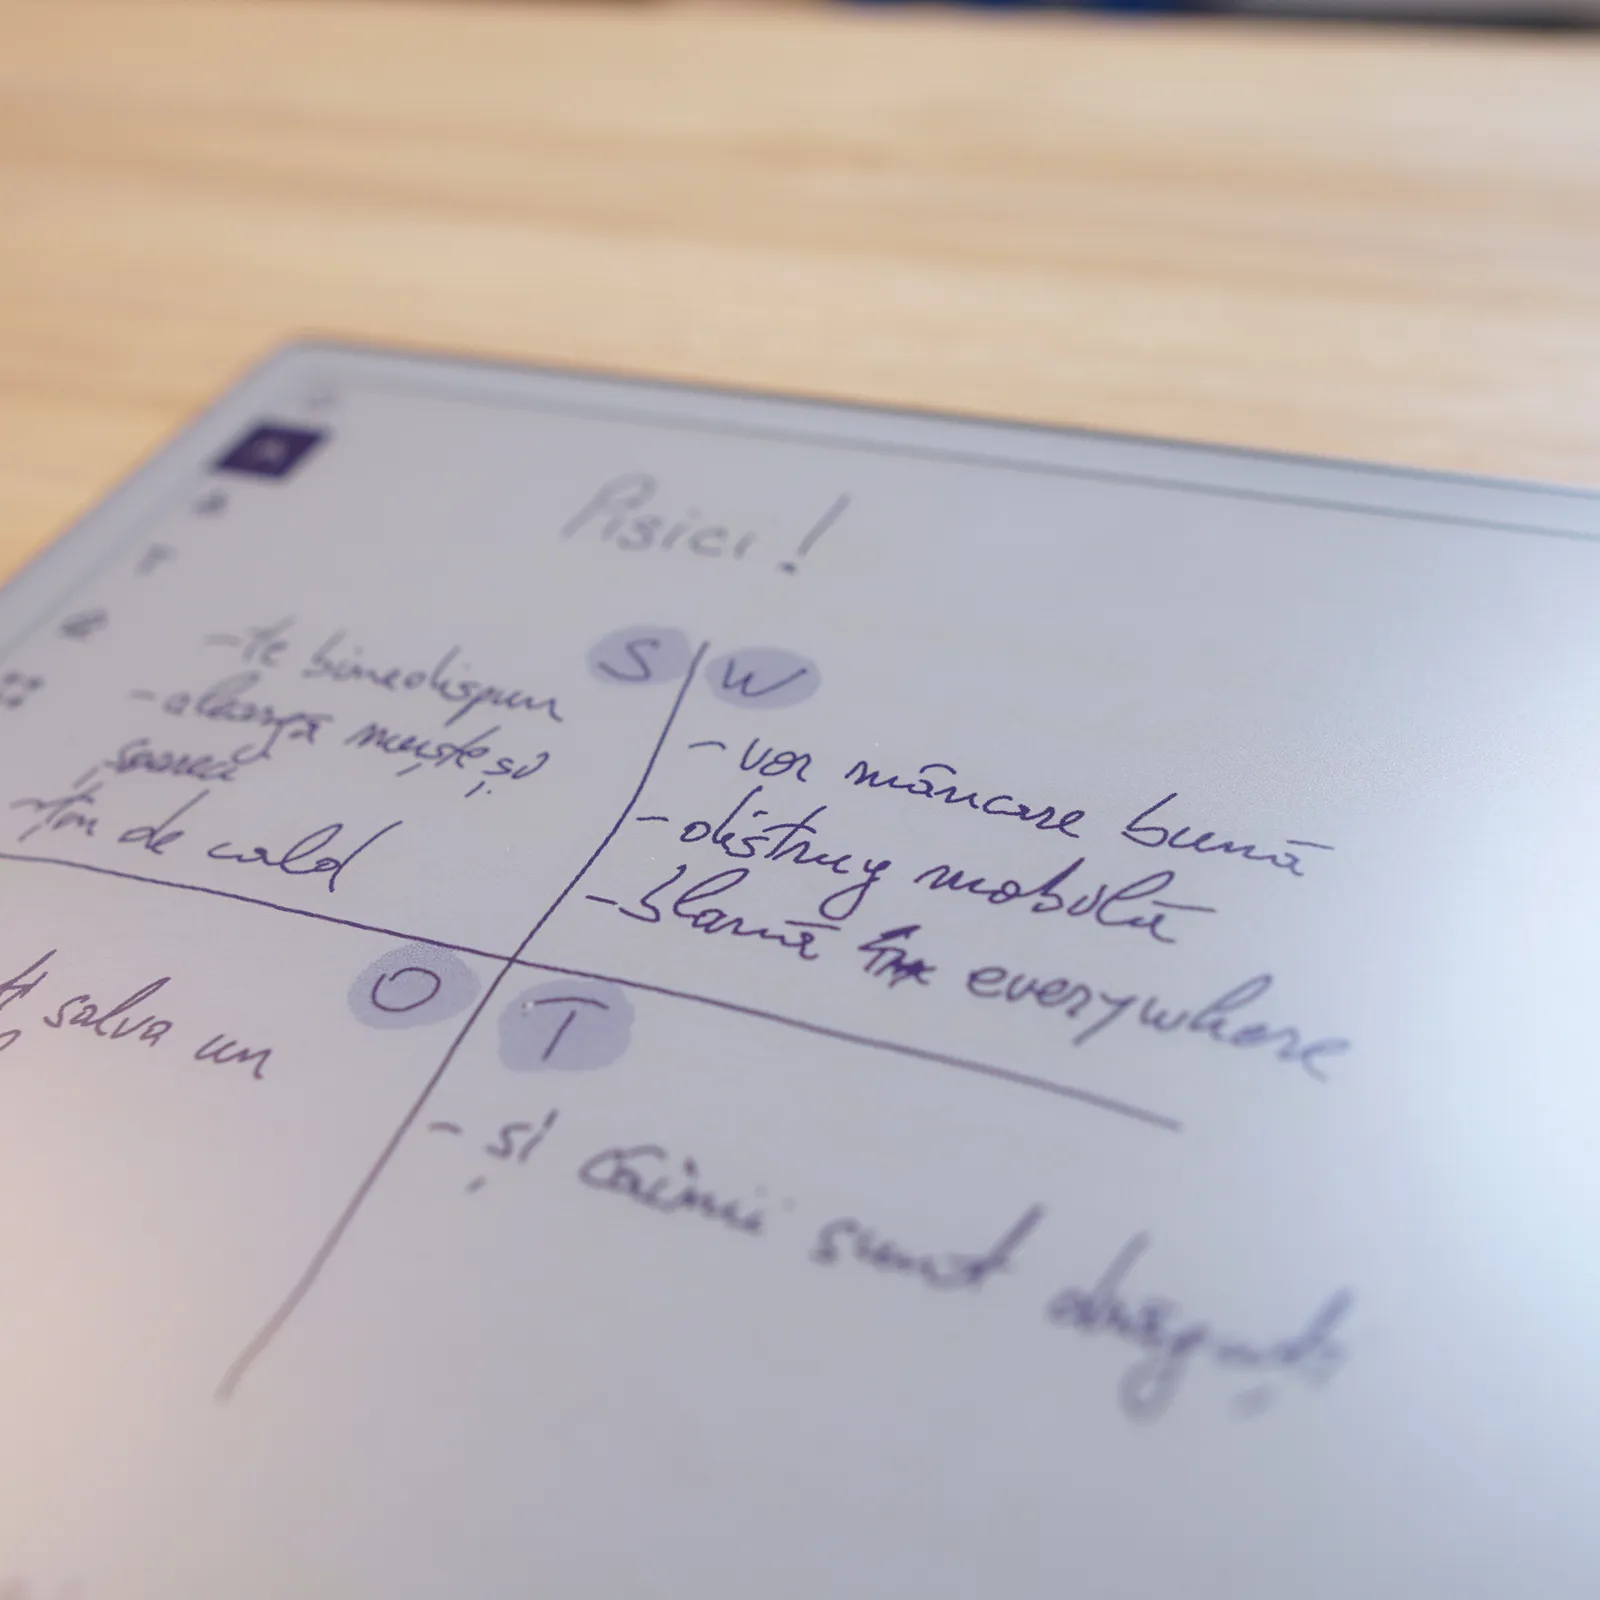 Pisici!
S
W
- te binedispun
- aleargă muște și
șoareci
- țin de cald
- vor mâncare bună
- distrug mobilă
- blană everywhere
O
T
salva un
- și câinii sunt drăguți